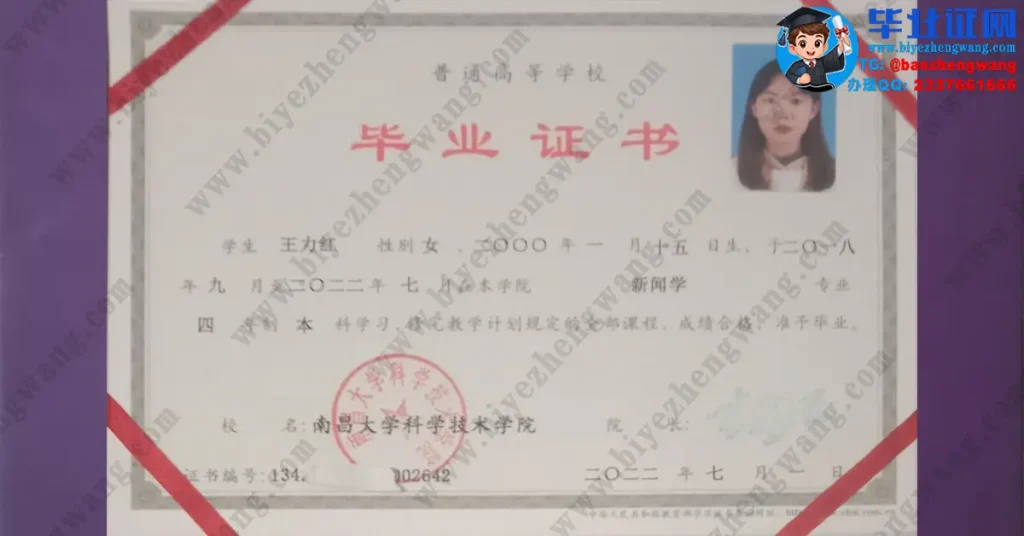 毕业证网
www.biyezhengwang.com
TG: @banzhengwang
办理QQ: 2337661666
普通高等学校
毕业证书
学生 王力红 性别 女 、二〇〇〇 年 一 月 十五 日生,于二〇一八
年 九 月至二〇二二年 七 月在本学院 新闻学 专业
四 年制 本 科学习,修完教学计划规定的全部课程,成绩合格,准予毕业。
南昌大学科学技术学院
校 名:南昌大学科学技术学院 院 长:
证书编号:134. 002642 二〇二二 年 七 月 一 日
www.biyezhengwang.com